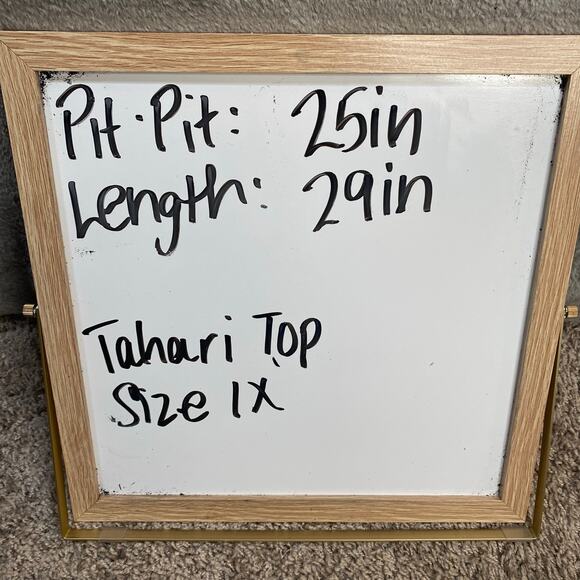 Pit·Pit: 25in
Length: 29in
Tahari Top
Size 1X